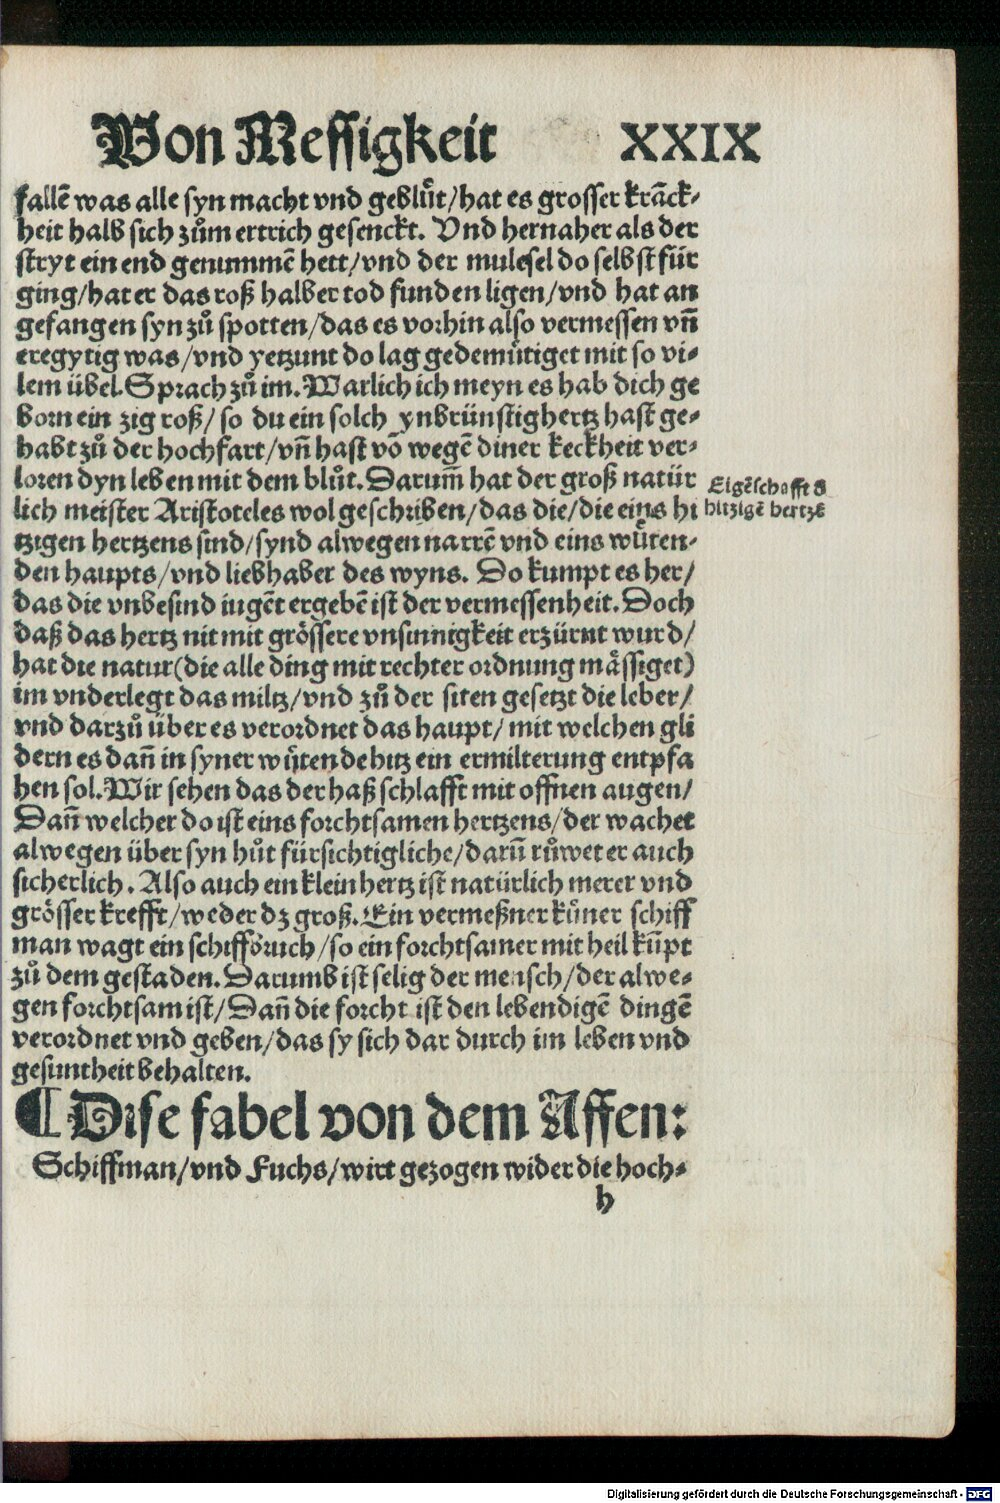 Von Messigkeit XXIX
fallē was alle syn macht vnd geblůt/hat es grosser krāck⸗
heit halb sich zům ertrich gesenckt. Vnd hernaher als der
stryt ein end genummē hett/vnd der mulesel do selbst für
ging/hat er das roß halber tod funden ligen/vnd hat an
gefangen syn zů spotten/das es vorhin also vermessen vn̄
eregytig was/vnd yetzunt do lag gedemütiget mit so vi⸗
lem übel. Sprach zů im. Warlich ich meyn es hab dich ge
born ein zig roß/so du ein solch ynbrünstig hertz hast ge⸗
habt zů der hochfart/vn̄ hast vō wegē diner keckheit ver⸗
loren dyn leben mit dem blůt. Darum̄ hat der groß natür
lich meister Aristoteles wol geschriben/das die/die eins hi
tzigen hertzens sind/synd alwegen narrē vnd eins wüten⸗
den haupts/vnd liebhaber des wyns. Do kumpt es her/
das die vnbesind iugēt ergebē ist der vermessenheit. Doch
daß das hertz nit mit grössere vnsinnigkeit erzürnt wurd/
hat die natur(die alle ding mit rechter ordnung mässiget)
im vnderlegt das miltz/vnd zů der siten gesetzt die leber/
vnd darzů über es verordnet das haupt/mit welchen gli
dern es dan̄ in syner wütende hitz ein ermilterung entpfa
hen sol. Wir sehen das der haß schlafft mit offnen augen/
Dan̄ welcher do ist eins forchtsamen hertzens/der wachet
alwegen über syn hůt fürsichtigliche/darū růwet er auch
sicherlich. Also auch ein klein hertz ist natürlich merer vnd
grösser krefft/weder dz groß. Ein vermeßner küner schiff
man wagt ein schiffbruch/so ein forchtsamer mit heil kūpt
zů dem gestaden. Darumb ist selig der mensch/der alwe⸗
gen forchtsam ist/Dan̄ die forcht ist den lebendigē dingē
verordnet vnd geben/das sy sich dar durch im leben vnd
gesuntheit behalten.
Eigēschafft d
hitzigē hertzē
¶ Dise fabel von dem Affen:
Schiffman/vnd Fuchs/wirt gezogen wider die hoch⸗
h
Digitalisierung gefördert durch die Deutsche Forschungsgemeinschaft - DFG